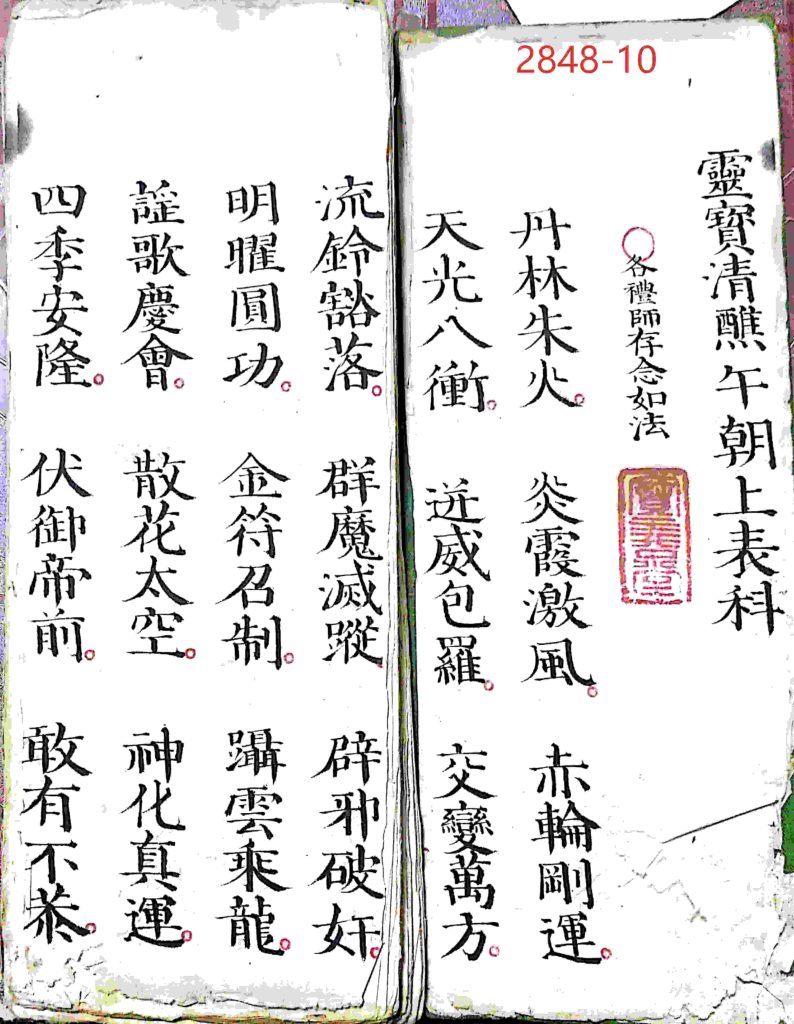 2848-10
靈寳清醮午朝上表科
各禮師存念如法
丹林朱火 炎霞激風 赤輪剛運
天光八衝 迸威包羅 交變萬方
流鈴豁落 群魔滅蹤 辟邪破奸
明曜圓功 金符召制 躡雲乘龍
謡歌慶會 散花太空 神化真運
四季安隆 伏御帝前 敢有不恭